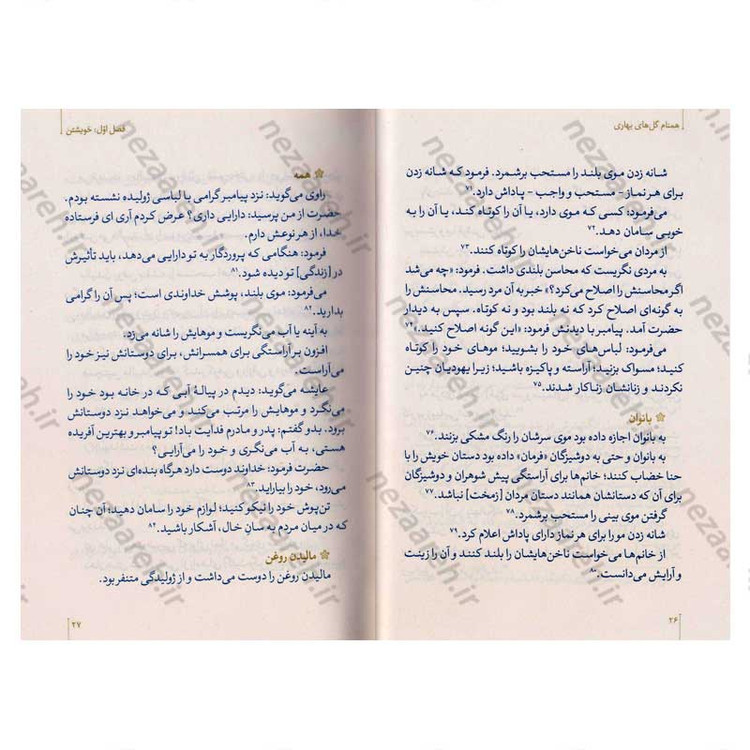 همنام گل‌های بهاری
شانه زدن موی بلند را مستحب برشمرد. فرمود که شانه زدن
برای هر نماز - مستحب و واجب - پاداش دارد.۷۱
می‌فرمود: کسی که موی دارد، یا آن را کوتاه کند، یا آن را به
خوبی سامان دهد.۷۲
از مردان می‌خواست ناخن‌هایشان را کوتاه کنند.۷۳
به مردی نگریست که محاسن بلندی داشت. فرمود: «چه می‌شد
اگر محاسنش را اصلاح می‌کرد؟» خبر به آن مرد رسید. محاسنش را
به گونه‌ای اصلاح کرد که نه بلند بود و نه کوتاه. سپس به دیدار
حضرت آمد. پیامبر با دیدنش فرمود: «این گونه اصلاح کنید.»۷۴
می‌فرمود: لباس‌های خود را بشویید؛ موهای خود را کوتاه
کنید؛ مسواک بزنید؛ آراسته و پاکیزه باشید؛ زیرا یهودیان چنین
نکردند و زنانشان زناکار شدند.۷۵
بانوان
به بانوان اجازه داده بود موی سرشان را رنگ مشکی بزنند.۷۶
به بانوان و حتی به دوشیزگان «فرمان» داده بود دستان خویش را با
حنا خضاب کنند؛ خانم‌ها برای آراستگی پیش شوهران و دوشیزگان
برای آن که دستانشان همانند دستان مردان [زمخت] نباشد.۷۷
گرفتن موی بینی را مستحب برشمرد.۷۸
شانه زدن مو را برای هر نماز دارای پاداش اعلام کرد.۷۹
از خانم‌ها می‌خواست ناخن‌هایشان را بلند کنند و آن را زینت
و آرایش می‌دانست.۸۰
۲۶
فصل اوّل: خویشتن
همه
راوی می‌گوید: نزد پیامبر گرامی با لباسی ژولیده نشسته بودم.
حضرت از من پرسید: دارایی داری؟ عرض کردم آری ای فرستاده
خدا، از هر نوعش دارم.
فرمود: هنگامی که پروردگار به تو دارایی می‌دهد، باید تأثیرش
در [زندگی] تو دیده شود.۸۱
می‌فرمود: موی بلند، پوشش خداوندی است؛ پس آن را گرامی
بدارید.۸۲
به آینه یا آب می‌نگریست و موهایش را شانه می‌زد.
افزون بر آراستگی برای همسرانش، برای دوستانش نیز خود را
می‌آراست.
عایشه می‌گوید: دیدم در پیالۀ آبی که در خانه بود خود را
می‌نگرد و موهایش را مرتب می‌کند و می‌خواهد نزد دوستانش
برود. بدو گفتم: پدر و مادرم فدایت باد! تو پیامبر و بهترین آفریده
هستی، به آب می‌نگری و خود را می‌آرایی؟
حضرت فرمود: خداوند دوست دارد هرگاه بنده‌ای نزد دوستانش
می‌رود، خود را بیاراید.۸۳
تن‌پوش خود را نیکو کنید؛ لوازم خود را سامان دهید؛ آن چنان
که در میان مردم به سانِ خال، آشکار باشید.۸۴
مالیدن روغن
مالیدن روغن را دوست می‌داشت و از ژولیدگی متنفر بود.
۲۷
nezaareh.ir